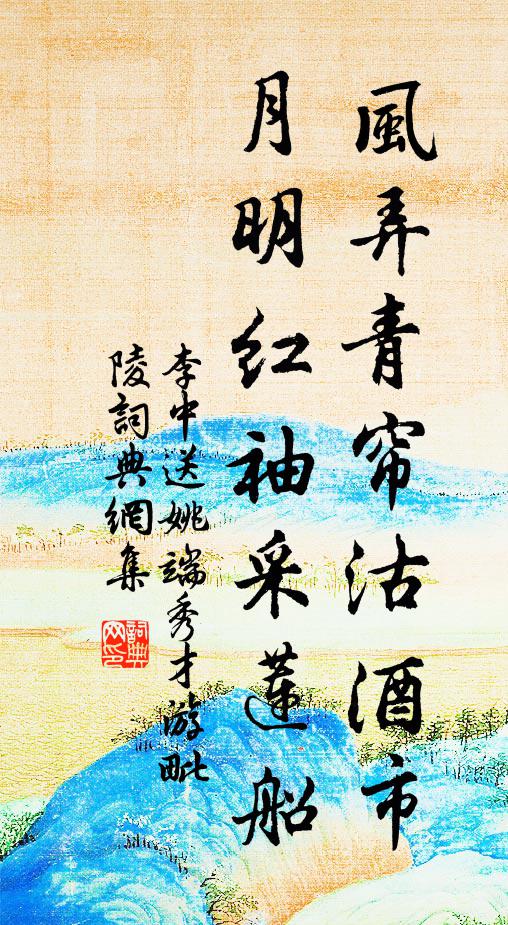 風弄青帘沽酒市
月明红袖采蓮船
李中送姚端秀才游毗
陵詞典網集
詞典
网印